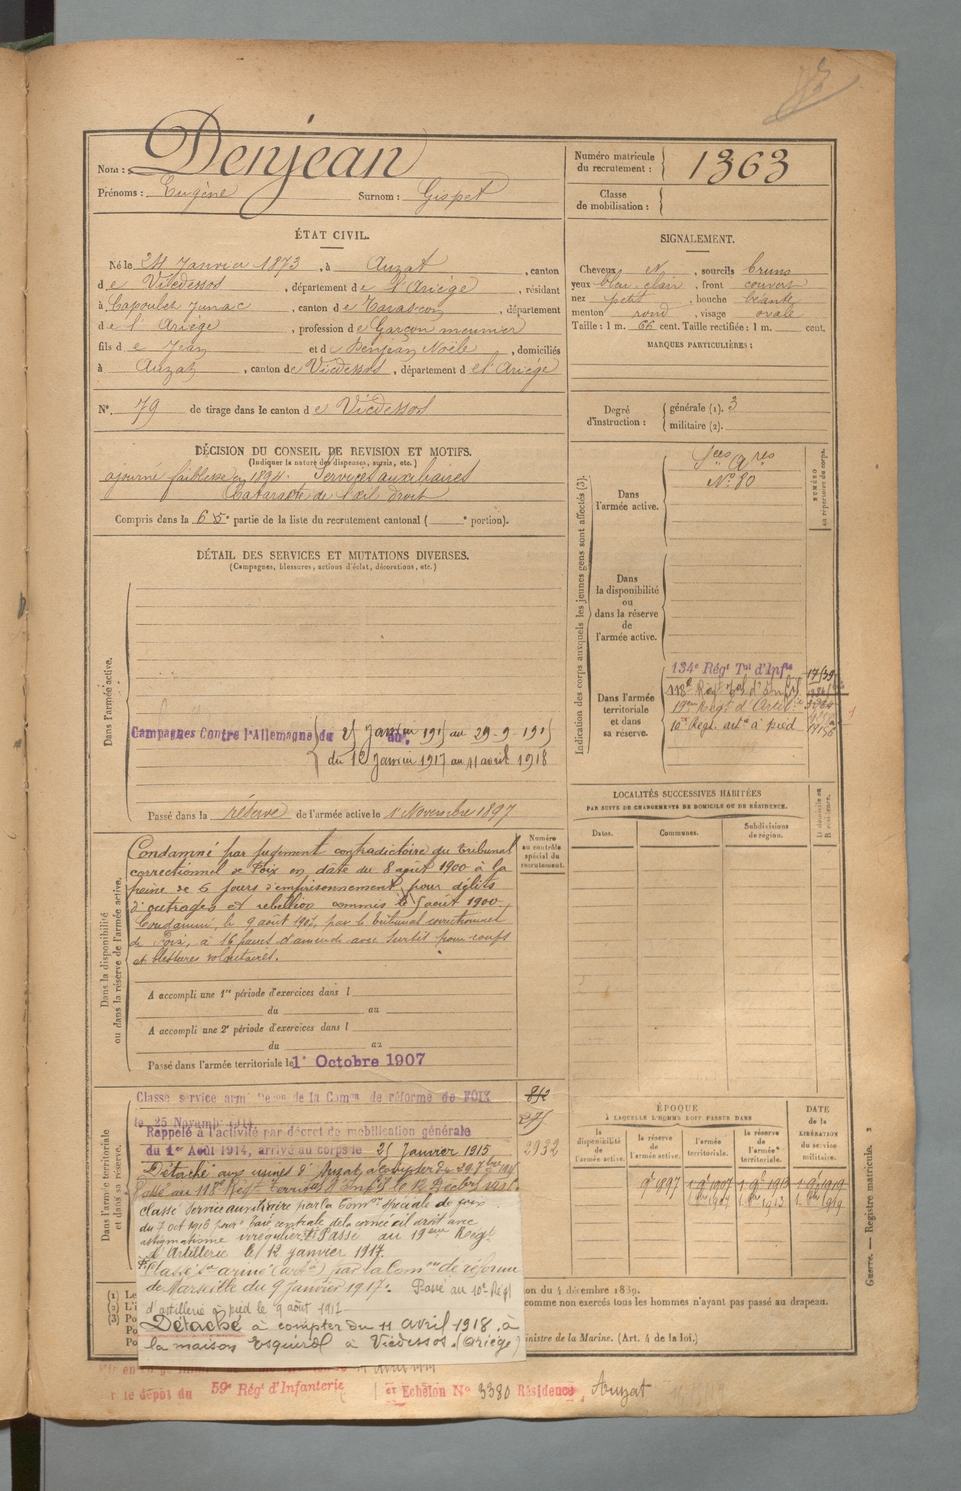 Nom : Denjean
Prénoms : Eugène Surnom : Gispet
Numéro matricule du recrutement : 1363
Classe de mobilisation :
ÉTAT CIVIL.
Né le 24 Janvier 1873, à Auzat, canton
de Vicdessos, département de l'Ariège, résidant
à Capoulet Junac, canton de Tarascon, département
de l'Ariège, profession de Garçon meunier
fils de Jean et de Denjean Noële, domiciliés
à Auzat, canton de Vicdessos, département de l'Ariège
N°. 79 de tirage dans le canton de Vicdessos
SIGNALEMENT.
Cheveux N, sourcils bruns
yeux bleu clair, front couvert
nez petit, bouche béante
menton rond, visage ovale
Taille : 1 m. 66 cent. Taille rectifiée : 1 m. cent.
MARQUES PARTICULIÈRES :
Degré d'instruction : générale (1). 3
militaire (2).
DÉCISION DU CONSEIL DE REVISION ET MOTIFS.
(Indiquer la nature des dispenses, sursis, etc.)
ajourné faiblesse en 1894. Services auxiliaires
Cataracte de l'œil droit
Compris dans la 6 5e partie de la liste du recrutement cantonal ( e portion).
DÉTAIL DES SERVICES ET MUTATIONS DIVERSES.
(Campagnes, blessures, actions d'éclat, décorations, etc.)
Dans l'armée active.
Campagnes Contre l'Allemagne du 25 Janvier 1915 au 29-9-1915
du 12 Janvier 1917 au 11 avril 1918
Passé dans la réserve de l'armée active le 1er Novembre 1897
Dans la disponibilité
ou dans la réserve de l'armée active.
Condamné par jugement contradictoire du tribunal
correctionnel de Foix en date du 8 août 1900 à la
peine de 6 jours d'emprisonnement pour délits
d'outrages et rebellion commis le 5 août 1900.
Condamné, le 9 août 1901, par le tribunal correctionnel
de Foix, à 16 francs d'amende avec sursis pour coups
et blessures volontaires.
Numéro au contrôle spécial du recrutement.
A accompli une 1re période d'exercices dans l
du au
A accompli une 2e période d'exercices dans l
du au
Passé dans l'armée territoriale le 1er Octobre 1907
Dans l'armée territoriale
et dans sa réserve.
Classé service armé de la Comon de réforme de FOIX
le 25 Novembre 1914
Rappelé à l'activité par décret de mobilisation générale
du 1er Août 1914, arrivé au corps le 25 Janvier 1915
2932
Détaché aux usines d'Auzat à compter du 29 7bre 1915
Passé au 118e Régt Territal d'Infie le 12 Décbre 1915.
classé Service auxiliaire par la Comon spéciale de foix
du 7 oct 1916 pour taie centrale de la cornée œil droit avec
astigmatisme irrégulier. Passé au 19eme Régt
d'Artillerie le 12 janvier 1917.
Classé Sce armé (art) par la Comon de réforme
de Marseille du 9 Janvier 1917. Passé au 10e Régt
d'artillerie à pied le 9 août 1917
Détaché à compter du 11 avril 1918 à
la maison Esquirol à Vicdessos (Ariège)
Indication des corps auxquels les jeunes gens sont affectés (3).
NUMÉRO au répertoire du corps.
Dans l'armée active.
Sces Aires
N° 80
Dans la disponibilité ou dans la réserve de l'armée active.
Dans l'armée territoriale et dans sa réserve.
134e Régt Tal d'Infie
118e Régt Tal d'Infie
19eme Régt d'Artie
10e Régt artie à pied
LOCALITÉS SUCCESSIVES HABITÉES
PAR SUITE DE CHANGEMENTS DE DOMICILE OU DE RÉSIDENCE.
Dates. Communes. Subdivisions de région. D domicile ou R résidence.
ÉPOQUE
À LAQUELLE L'HOMME DOIT PASSER DANS
la disponibilité de l'armée active. la réserve de l'armée active. l'armée territoriale. la réserve de l'armée territoriale.
DATE de la LIBÉRATION du service militaire.
9bre 1897 1 9bre 1907 1 9bre 1913 1 9bre 1919
1 8bre 1907 1 8bre 1913 1 8bre 1919
on du 4 décembre 1889.
comme non exercés tous les hommes n'ayant pas passé au drapeau.
inistre de la Marine. (Art. 4 de la loi.)
Guerre. — Registre matricule. 2
le dépôt du 59e Régt d'Infanterie
Echelon N° 3380 Résidence Auzat